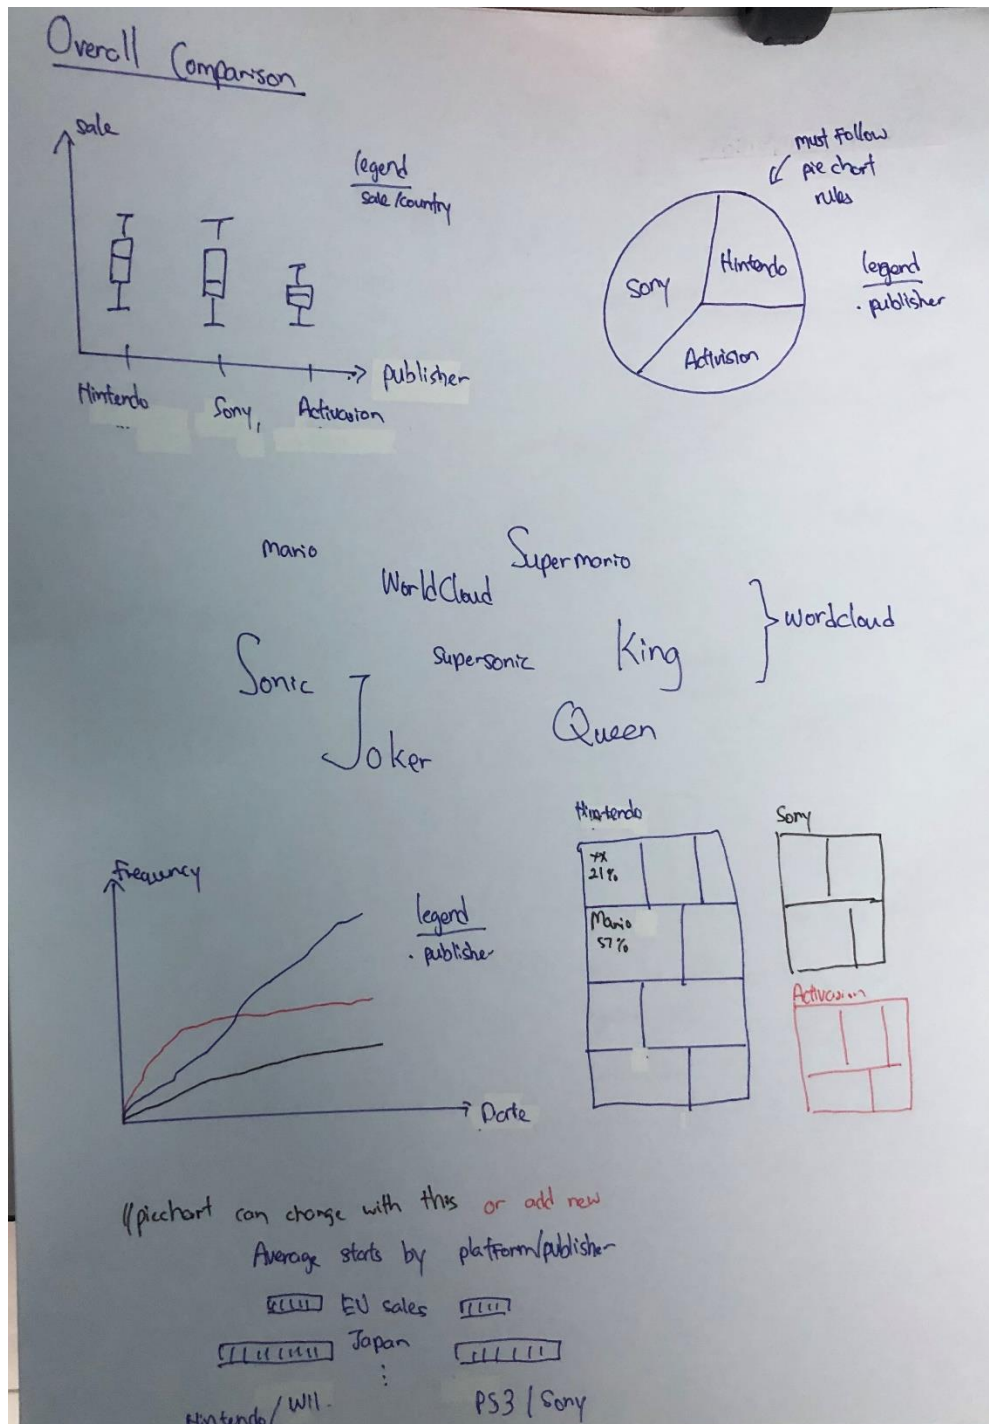 Overall Comparison
sale
legend
sale/country
Nintendo
...
Sony,
Activasion
publisher
must follow
pie chart
rules
Sony
Nintendo
Activision
legend
. publisher
mario
WorldCloud
Supermario
Sonic
supersonic
King
Joker
Queen
wordcloud
frequncy
legend
. publisher
Date
Nintendo
xx
21%
Mario
57%
Sony
Activasion
//piechart can change with this or add new
Average stats by platform/publisher
EU sales
Japan
⋮
Nintendo/WII.
PS3 / Sony